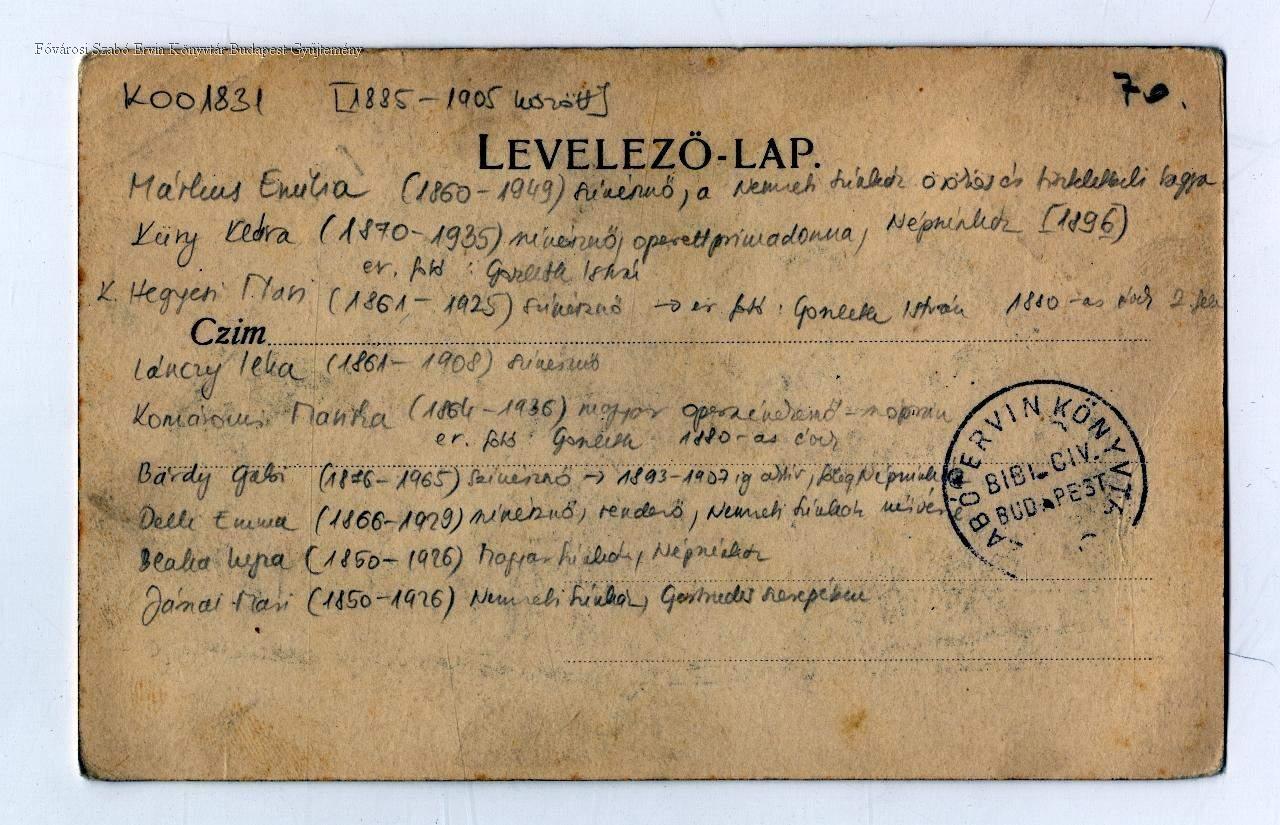 Fővárosi Szabó Ervin Könyvtár Budapest Gyűjtemény
K001831 [1885-1905 között] 70.
LEVELEZŐ-LAP.
Márkus Emília (1860-1949) színésznő, a Nemzeti Színház örökös és tiszteletbeli tagja
Küry Klára (1870-1935) színésznő, operettprimadonna, Népszínház [1896]
er. fotó: Goszleth István
K. Hegyesi Mari (1861-1925) színésznő → er fotó: Goszleth István 1880-as évek 2. fele
Czim
Lánczy Ilka (1861-1908) színésznő
Komáromi Mariska (1864-1936) magyar operaénekesnő - szoprán
er. fotó: Goszleth 1880-as évek
Bárdy Gabi (1876-1965) színésznő → 1893-1907 ig aktív, főleg Népszínház
Delli Emma (1866-1929) színésznő, rendező, Nemzeti Színház művésze
Blaha Lujza (1850-1926) Magyar Színház, Népszínház
Jászai Mari (1850-1926) Nemzeti Színház, Gertrudis szerepében
ABÓ ERVIN KÖNYVTÁ
BIBL. CIV.
BUDAPEST